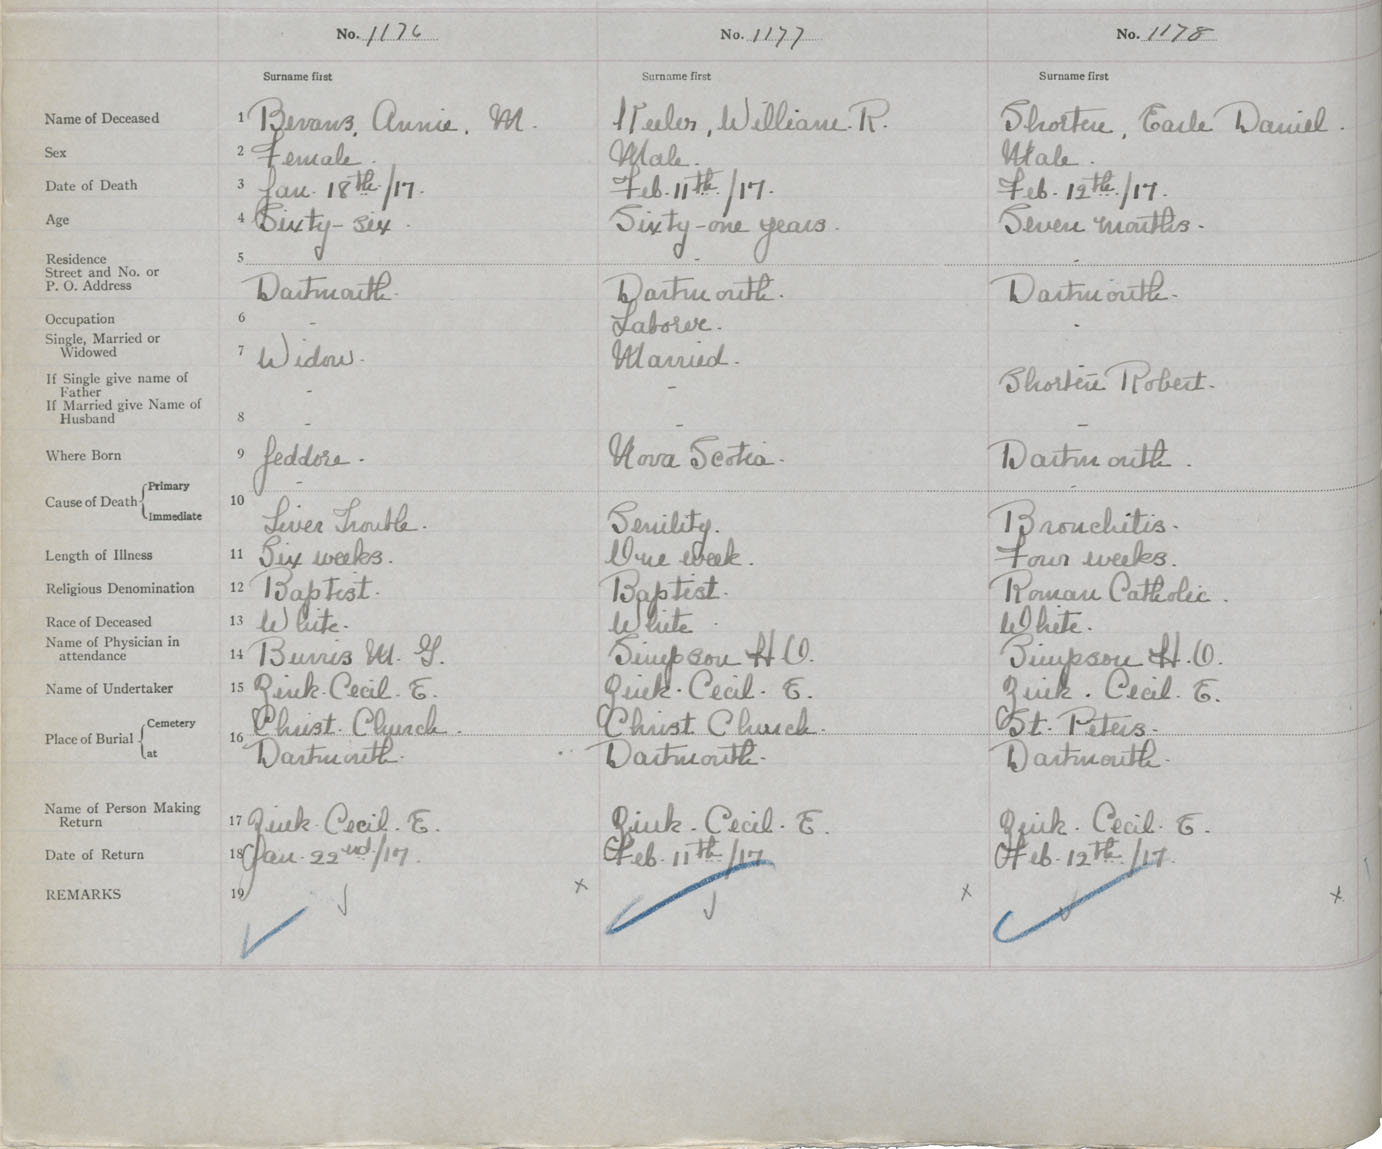 No. 1176 No. 1177 No. 1178
Surname first Surname first Surname first
Name of Deceased 1 Bevans, Annie, M. Keeler, William. R. Shorten, Earle Daniel.
Sex 2 Female. Male. Male.
Date of Death 3 Jan. 18th/17. Feb. 11th/17. Feb. 12th/17.
Age 4 Sixty-six. Sixty-one years. Seven months.
Residence 5 - -
Street and No. or
P. O. Address Dartmouth. Dartmouth. Dartmouth.
Occupation 6 - Laborer. -
Single, Married or
Widowed 7 Widow. Married. -
If Single give name of
Father - - Shorten Robert.
If Married give Name of
Husband 8 - - -
Where Born 9 Jeddore. Nova Scotia. Dartmouth.
Cause of Death Primary 10 - -
Immediate Liver Trouble. Senility. Bronchitis.
Length of Illness 11 Six weeks. One week. Four weeks.
Religious Denomination 12 Baptist. Baptist. Roman Catholic.
Race of Deceased 13 White. White. White.
Name of Physician in
attendance 14 Burris M. G. Simpson H. O. Simpson H. O.
Name of Undertaker 15 Zink. Cecil. E. Zink. Cecil. E. Zink. Cecil. E.
Place of Burial Cemetery 16 Christ. Church. Christ Church. St. Peters.
at Dartmouth. Dartmouth. Dartmouth.
Name of Person Making
Return 17 Zink. Cecil. E. Zink. Cecil. E. Zink. Cecil. E.
Date of Return 18 Jan. 22nd/17. Feb. 11th/17 Feb. 12th/17.
REMARKS 19 x x x